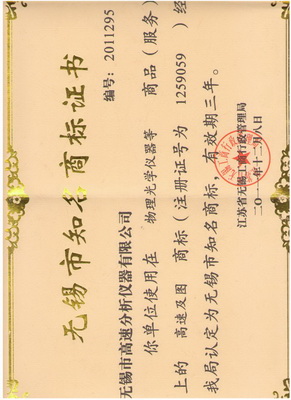 无锡市知名商标证书
编号：2011295
无锡市高速分析仪器有限公司
你单位使用在 物理光学仪器等 商品（服务）
上的 高速及图 商标（注册证号为 1259059 ）经
我局认定为无锡市知名商标，有效期三年。
江苏省无锡工商行政管理局
二〇一一年十二月八日